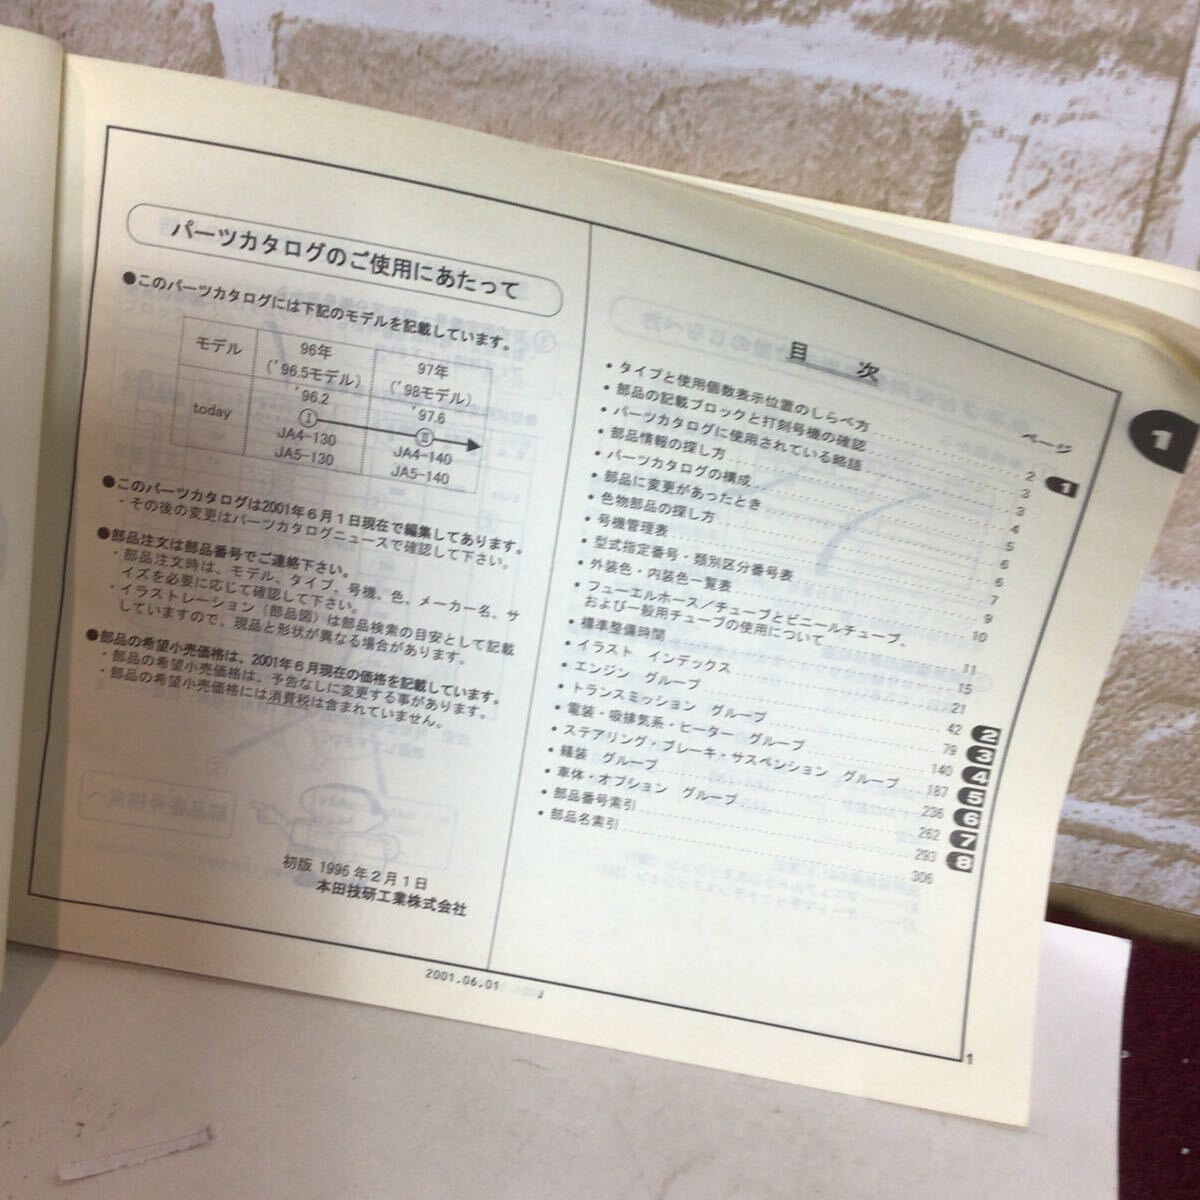 パーツカタログのご使用にあたって
●このパーツカタログには下記のモデルを記載しています。
モデル
96年
('96.5モデル)
97年
('98モデル)
today
'96.2
'97.6
Ⅰ
Ⅱ
JA4-130
JA5-130
JA4-140
JA5-140
●このパーツカタログは2001年6月1日現在で編集してあります。
・その後の変更はパーツカタログニュースで確認して下さい。
●部品注文は部品番号でご連絡下さい。
・部品注文時は、モデル、タイプ、号機、色、メーカー名、サ
イズを必要に応じて確認して下さい。
・イラストレーション(部品図)は部品検索の目安として記載
していますので、現品と形状が異なる場合があります。
●部品の希望小売価格は、2001年6月現在の価格を記載しています。
・部品の希望小売価格は、予告なしに変更する事があります。
・部品の希望小売価格には消費税は含まれていません。
初版 1996年2月1日
本田技研工業株式会社
目 次
ページ
・タイプと使用個数表示位置のしらべ方 2 1
・部品の記載ブロックと打刻号機の確認 3
・パーツカタログに使用されている略語 3
・部品情報の探し方 4
・パーツカタログの構成 5
・部品に変更があったとき 6
・色物部品の探し方 6
・号機管理表 7
・型式指定番号・類別区分番号表 9
・外装色・内装色一覧表 10
・フューエルホース/チューブとビニールチューブ、
および一般用チューブの使用について 11
・標準整備時間 15
・イラスト インデックス 21
・エンジン グループ 42 2
・トランスミッション グループ 79 3
・電装・吸排気系・ヒーター グループ 140 4
・ステアリング・ブレーキ・サスペンション グループ 187 5
・艤装 グループ 236 6
・車体・オプション グループ 262 7
・部品番号索引 293 8
・部品名索引 306
1
2001.06.01
1